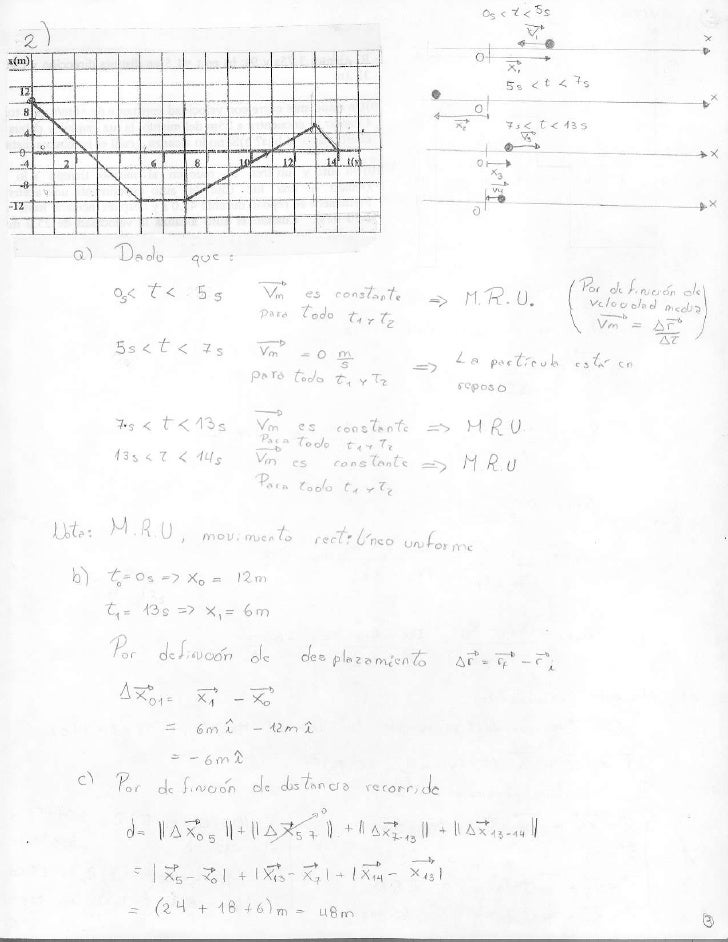 2)
x(m)
12
8
4
0
-4
-8
-12
2 6 8 10 12 14 t(s)
0s < t < 5s
V₁
x
0
X₁
5s < t < 7s
x
0
X₂
7s < t < 13s
V₃
x
0
X₃
V₄
x
0
a) Dado que:
0s < t < 5s Vm es constante para todo t₁ y t₂ => M.R.U. (Por definición de velocidad media Vm = Δr/Δt)
5s < t < 7s Vm = 0 m/s para todo t₁ y t₂ => La partícula está en reposo
7s < t < 13s Vm es constante => M R U
Para todo t₁ y t₂
13s < t < 14s Vm es constante => M R U
Para todo t₁ y t₂
Nota: M.R.U, movimiento rectilíneo uniforme
b) t₀ = 0s => X₀ = 12m
t₁ = 13s => X₁ = 6m
Por definición de desplazamiento Δr = r_f - r_i
ΔX₀₁ = X₁ - X₀
= 6m î - 12m î
= -6m î
c) Por definición de distancia recorrida
d = ||ΔX₀₅|| + ||ΔX₅₇||⁰ + ||ΔX₇₋₁₃|| + ||ΔX₁₃₋₁₄||
= |X₅ - X₀| + |X₁₃ - X₇| + |X₁₄ - X₁₃|
= (24 + 18 + 6)m = 48m
3